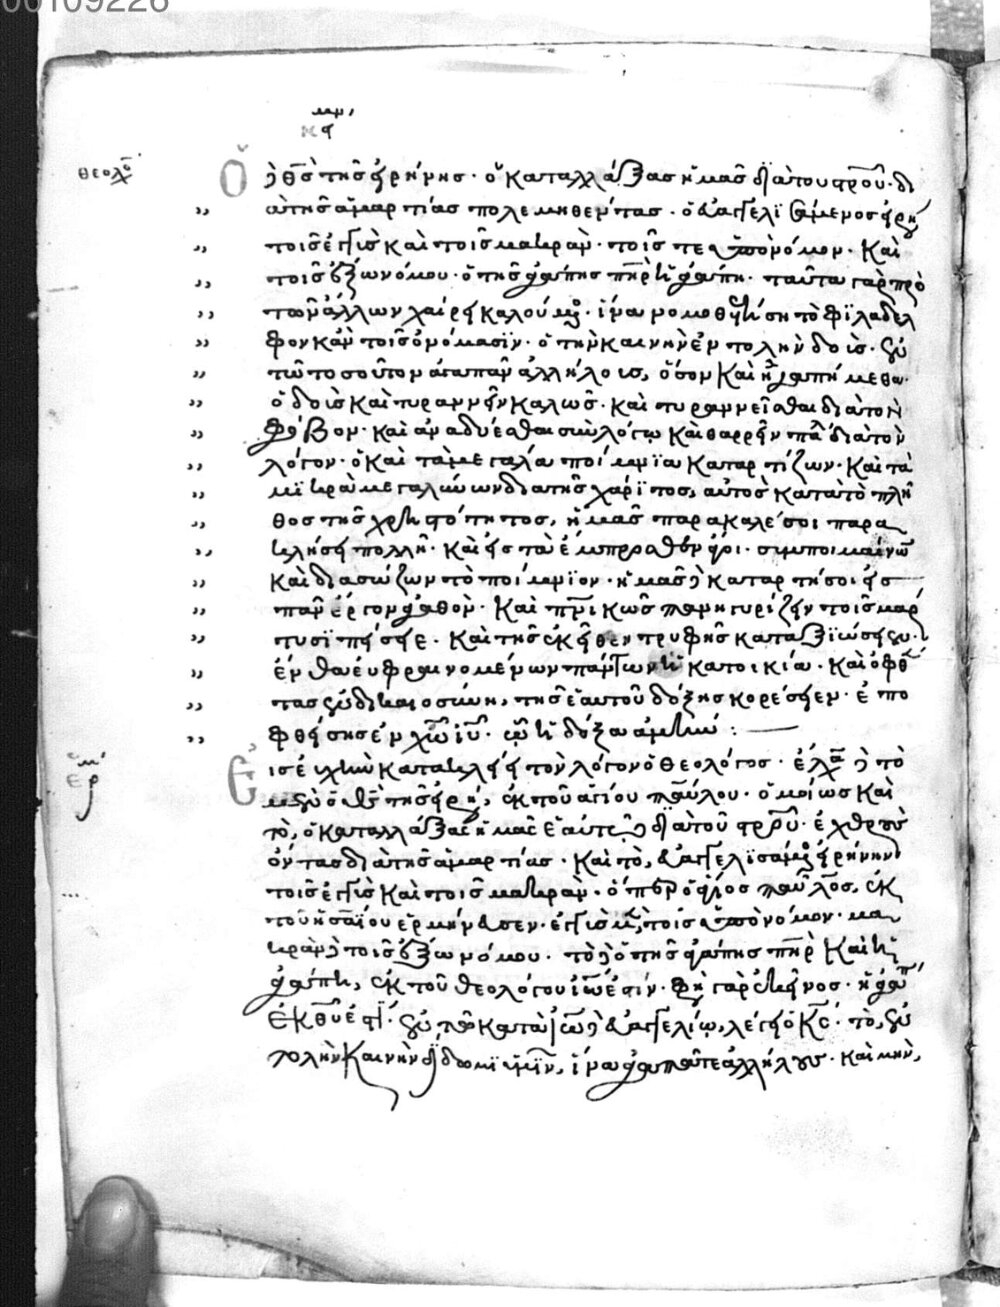 00109226
θεολό
Ὁ θς τῆς εἰρήνης· ὁ καταλλάξας ἡμᾶς δϊὰ τοῦ στροῦ· δι
ὰ τῆς ἁμαρτίας πολεμηθέντας· ὁ εὐαγγελϊσάμενος εἰρήνην
τοῖς ἐγγὺς καὶ τοῖς μακρὰν· τοῖς τε ὑπὸ νόμον· καὶ
τοῖς ἔξω νόμου· ὁ τῆς ἀγάπης πηρ ἡ ἀγάπη· ταῦτα γὰρ πρὸ
τῶν ἄλλων χαίρει καλούμενος· ἵνα νομοθετήση τὸ φϊλάδελ
φον κἀν τοῖς ὀνόμασϊν· ὁ τὴν καινὴν ἐντολὴν δοὺς· ἐν
τῶ τοσοῦτον ἀγαπᾶν ἀλλήλους, ὅσον καὶ ἠγαπήμεθα·
ὁ δοὺς καὶ τυραννεῖν καλῶς· καὶ τυραννεῖσθαι διὰ τὸν
φόβον· καὶ ἀναδύεσθαι σὺν λόγω καὶ θαρρεῖν πάλιν διὰ τὸν
λόγον· ὁ καὶ τὰ μεγάλα ποίμνϊα καταρτίζων· καὶ τὰ
μϊκρὰ μεγαλύνων διὰ τῆς χάρϊτος, αὐτὸς κατὰ τὸ πλῆ
θος τῆς χρηστότητος, ἡμᾶς παρακαλέσοι παρα
κλήσει πολλῆ· καὶ εἰς τὰ ἔμπροσθεν φέροι· συμποιμαίνων
καὶ διασώζων τὸ ποίμνϊον· ἡμᾶς καταρτήσοι εἰς
πᾶν ἔργον ἀγαθὸν· καὶ πνικῶς πανηγυρίζειν τοῖς μάρ
τυσϊ πείσειε· καὶ τῆς ἐκεῖθεν τρυφῆς καταξϊώσειεν·
ἔνθα εὐφραινομένων πάντων ἡ κατοικία· καὶ ὀφθέν
τας ἐν δικαιοσύνη, τῆς ἑαυτοῦ δόξης κορέσειεν· ἐπο
φθείσης ἐν χῶ ιῦ· ᾧ ἡ δόξα ἀμήν:
Εἰς εὐχὴν κατακλείει τὸν λόγον ὁ θεολόγος· ἔλαβε τὸ
μὲν ὁ θς τῆς εἰρήνης, ἐκ τοῦ ἁγίου παύλου· ὁμοίως καὶ
τὸ, ὁ καταλλάξας ἡμᾶς ἑαυτῶ δϊὰ τοῦ στροῦ· ἐχθροὺς
ὄντας διὰ τῆς ἁμαρτίας· καὶ τὸ, εὐαγγελϊσάμενος εἰρήνην
τοῖς ἐγγὺς καὶ τοῖς μακρὰν· ὅπερ ὁ θεῖος παῦλος, ἐκ
τοῦ ἠσαΐου ἑρμήνευσεν· ἐγγὺς τοὺς ὑπὸ νόμον· μα
κρὰν τοῖς ἔξω νόμου· τὸ ὁ τῆς ἀγάπης πηρ καὶ ἡ
ἀγάπη, ἐκ τοῦ θεολόγου ἰῶ ἐστίν· φησὶ γὰρ ἐκεῖνος· ἡ ἀγάπη
ἐκ θυ ἐστὶ· ἐν τῶ κατὰ ἰῶ εὐαγγελίω, λέγει ὁ κς· τὸ, ἐν
τολὴν καινὴν δίδωμϊ ὑμῖν, ἵνα ἀγαπᾶτε ἀλλήλους· καὶ μὴν,